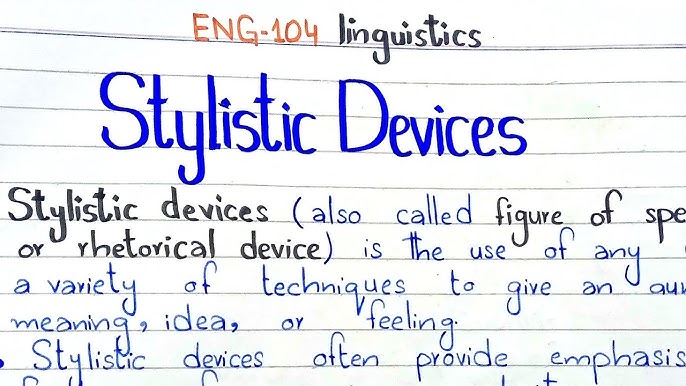 ENG-104 linguistics
Stylistic Devices
Stylistic devices (also called figure of spe
or rhetorical device) is the use of any
a variety of techniques to give an au
meaning, idea, or feeling.
• Stylistic devices often provide emphasis